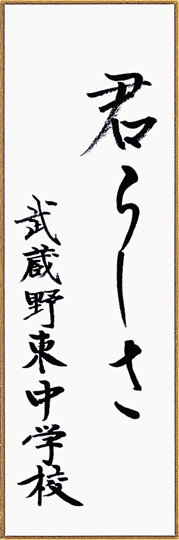 君らしさ
武蔵野東中学校